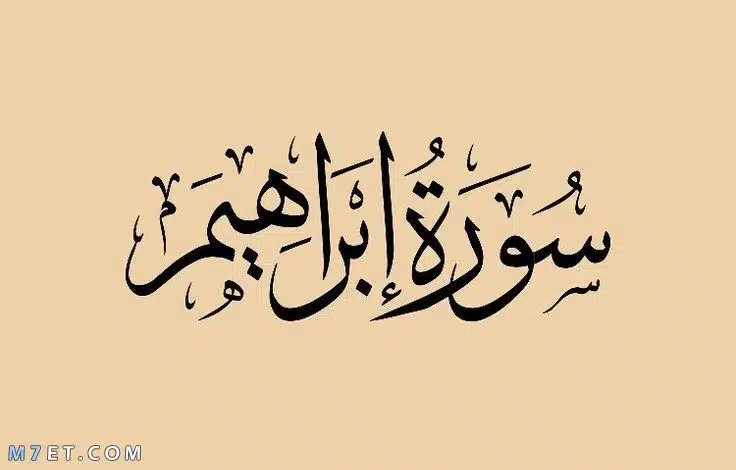 سُورَةُ إِبْرَاهِيمَ
M7ET.COM